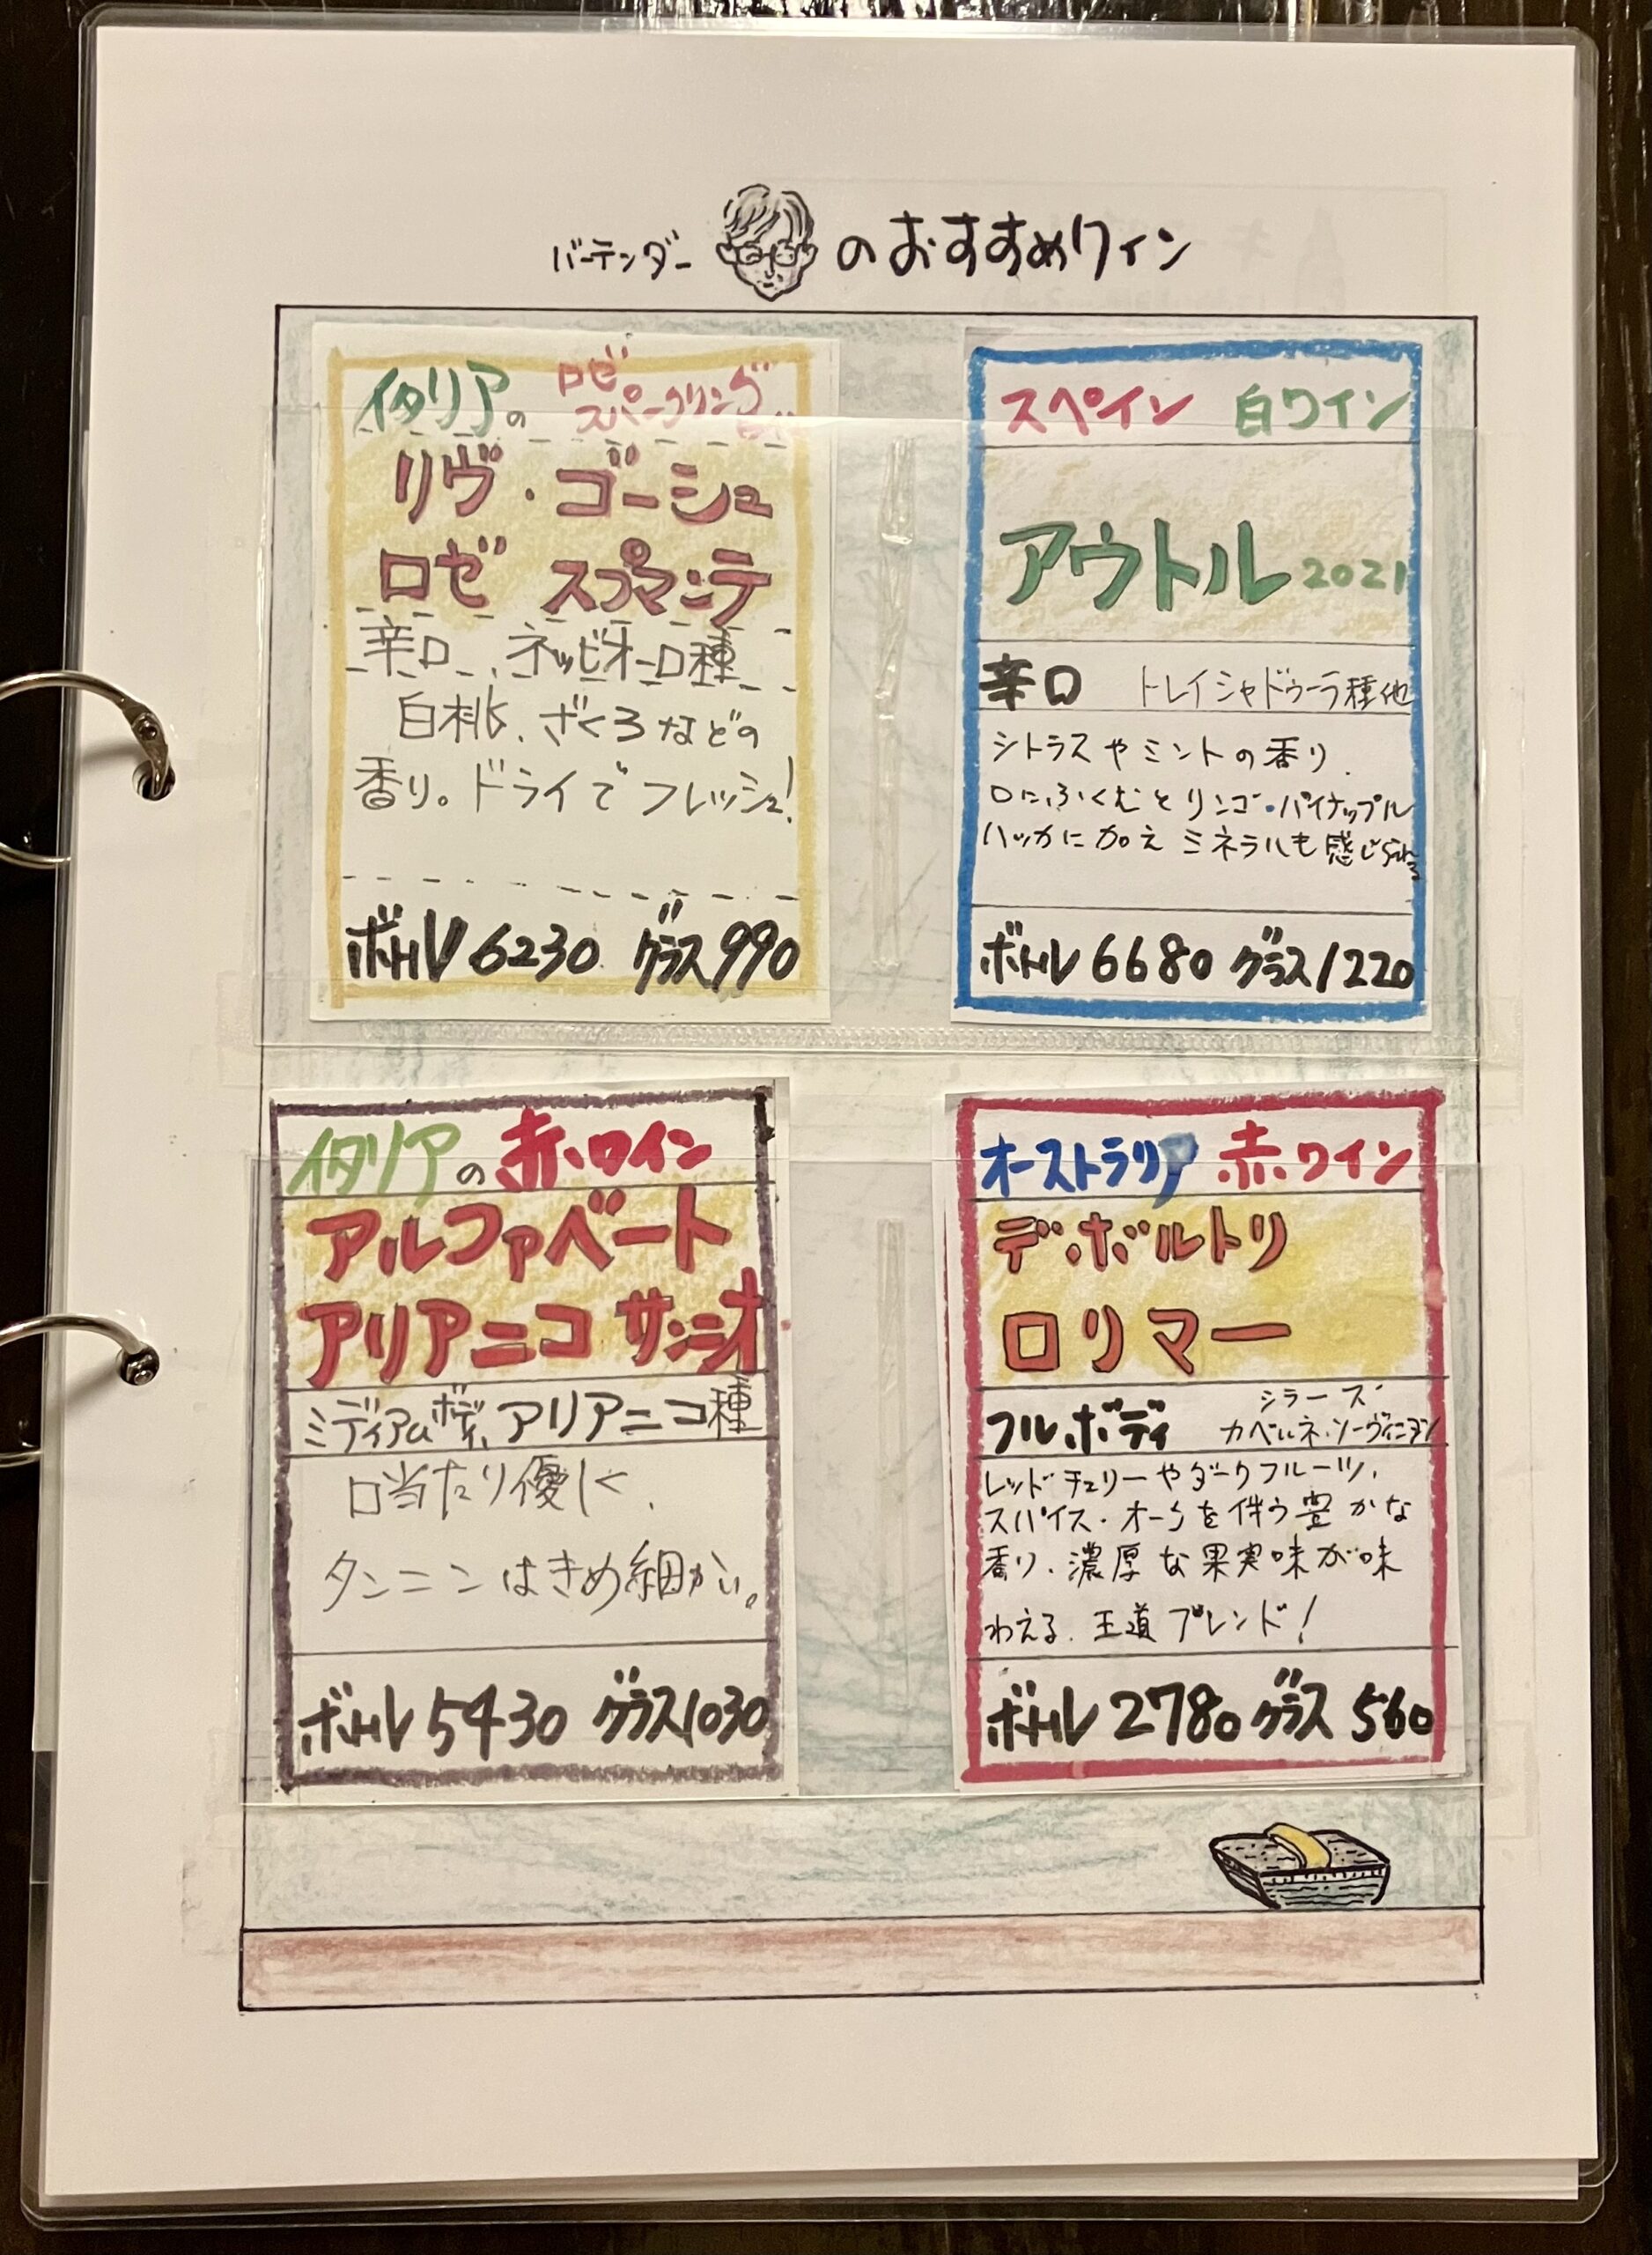 バーテンダー のおすすめワイン
イタリアの ロゼ
スパークリング
リヴ・ゴーシュ
ロゼ スプマンテ
辛口、ネッビオーロ種
白桃、ざくろなどの
香り。ドライでフレッシュ!
ボトル 6230 グラス 990
スペイン 白ワイン
アウトル 2021
辛口 トレイシャドゥーラ種他
シトラスやミントの香り、
口にふくむとリンゴ・パイナップル
ハッカに加えミネラルも感じられる
ボトル 6680 グラス 1220
イタリアの赤ワイン
アルファベート
アリアニコ サンニオ
ミディアムボディ、アリアニコ種
口当たり優しく、
タンニンはきめ細かい。
ボトル 5430 グラス 1030
オーストラリア 赤ワイン
デ・ボルトリ
ロリマー
フルボディ シラーズ
カベルネ・ソーヴィニヨン
レッドチェリーやダークフルーツ、
スパイス・オークを伴う豊かな
香り、濃厚な果実味が味
わえる、王道ブレンド!
ボトル 2780 グラス 560